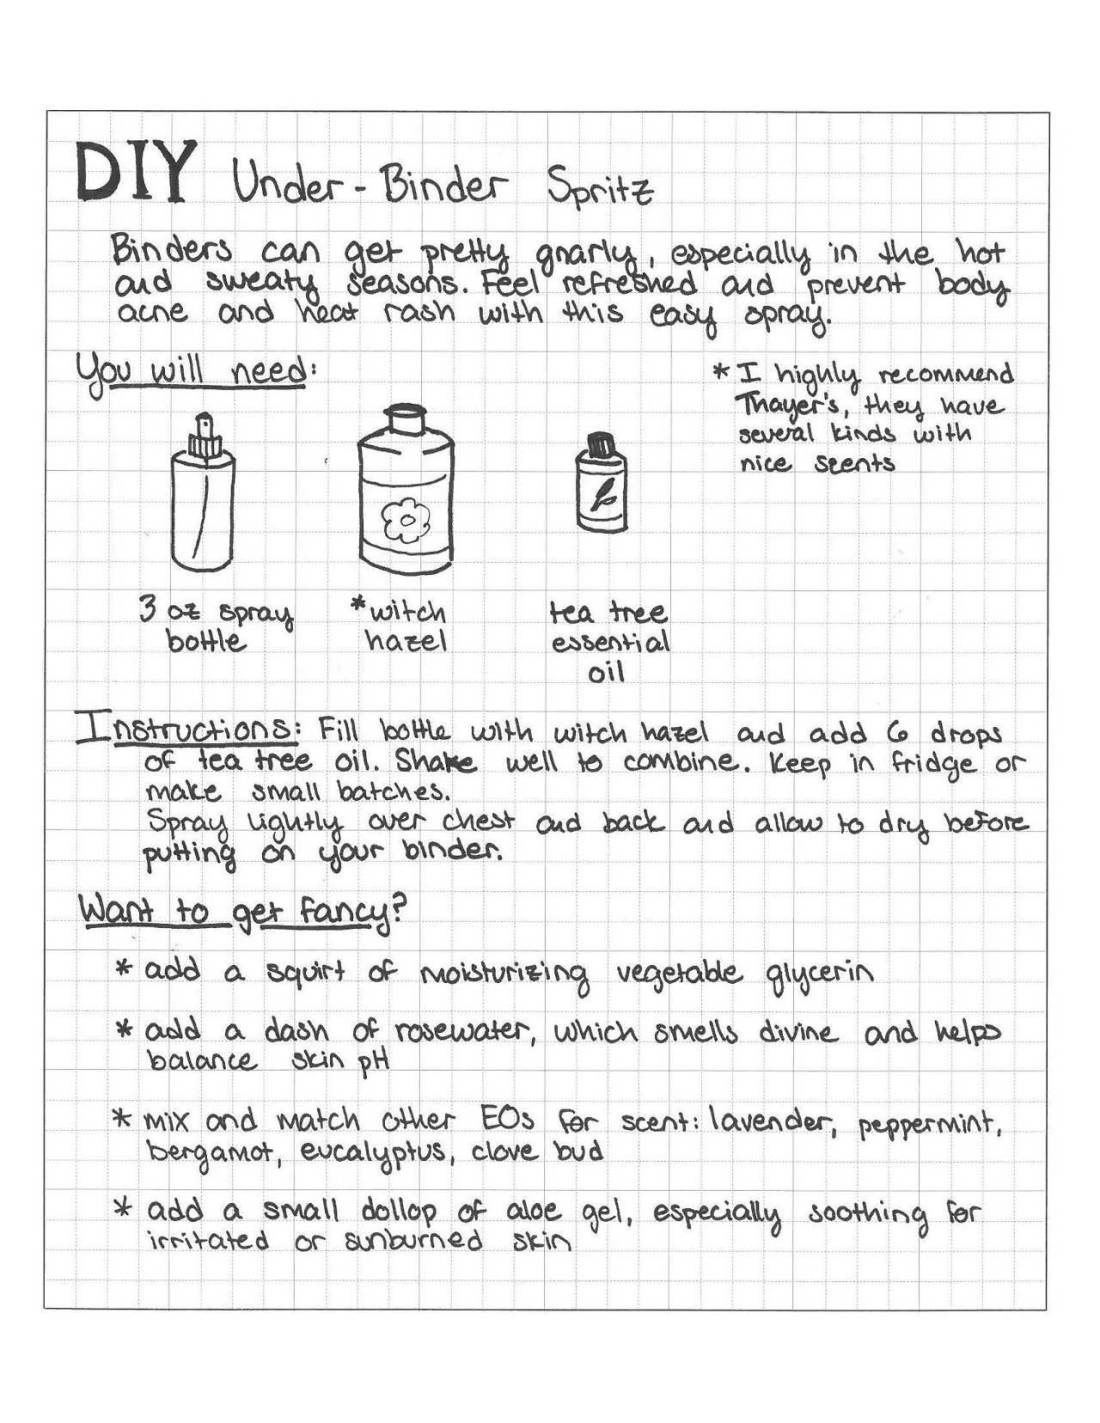 DIY Under-Binder Spritz
Binders can get pretty gnarly, especially in the hot
and sweaty seasons. Feel refreshed and prevent body
acne and heat rash with this easy spray.
You will need:
* I highly recommend
Thayer's, they have
several kinds with
nice scents
3 oz spray
bottle
*witch
hazel
tea tree
essential
oil
Instructions: Fill bottle with witch hazel and add 6 drops
of tea tree oil. Shake well to combine. Keep in fridge or
make small batches.
Spray lightly over chest and back and allow to dry before
putting on your binder.
Want to get fancy?
* add a squirt of moisturizing vegetable glycerin
* add a dash of rosewater, which smells divine and helps
balance skin pH
* mix and match other EOs for scent: lavender, peppermint,
bergamot, eucalyptus, clove bud
* add a small dollop of aloe gel, especially soothing for
irritated or sunburned skin